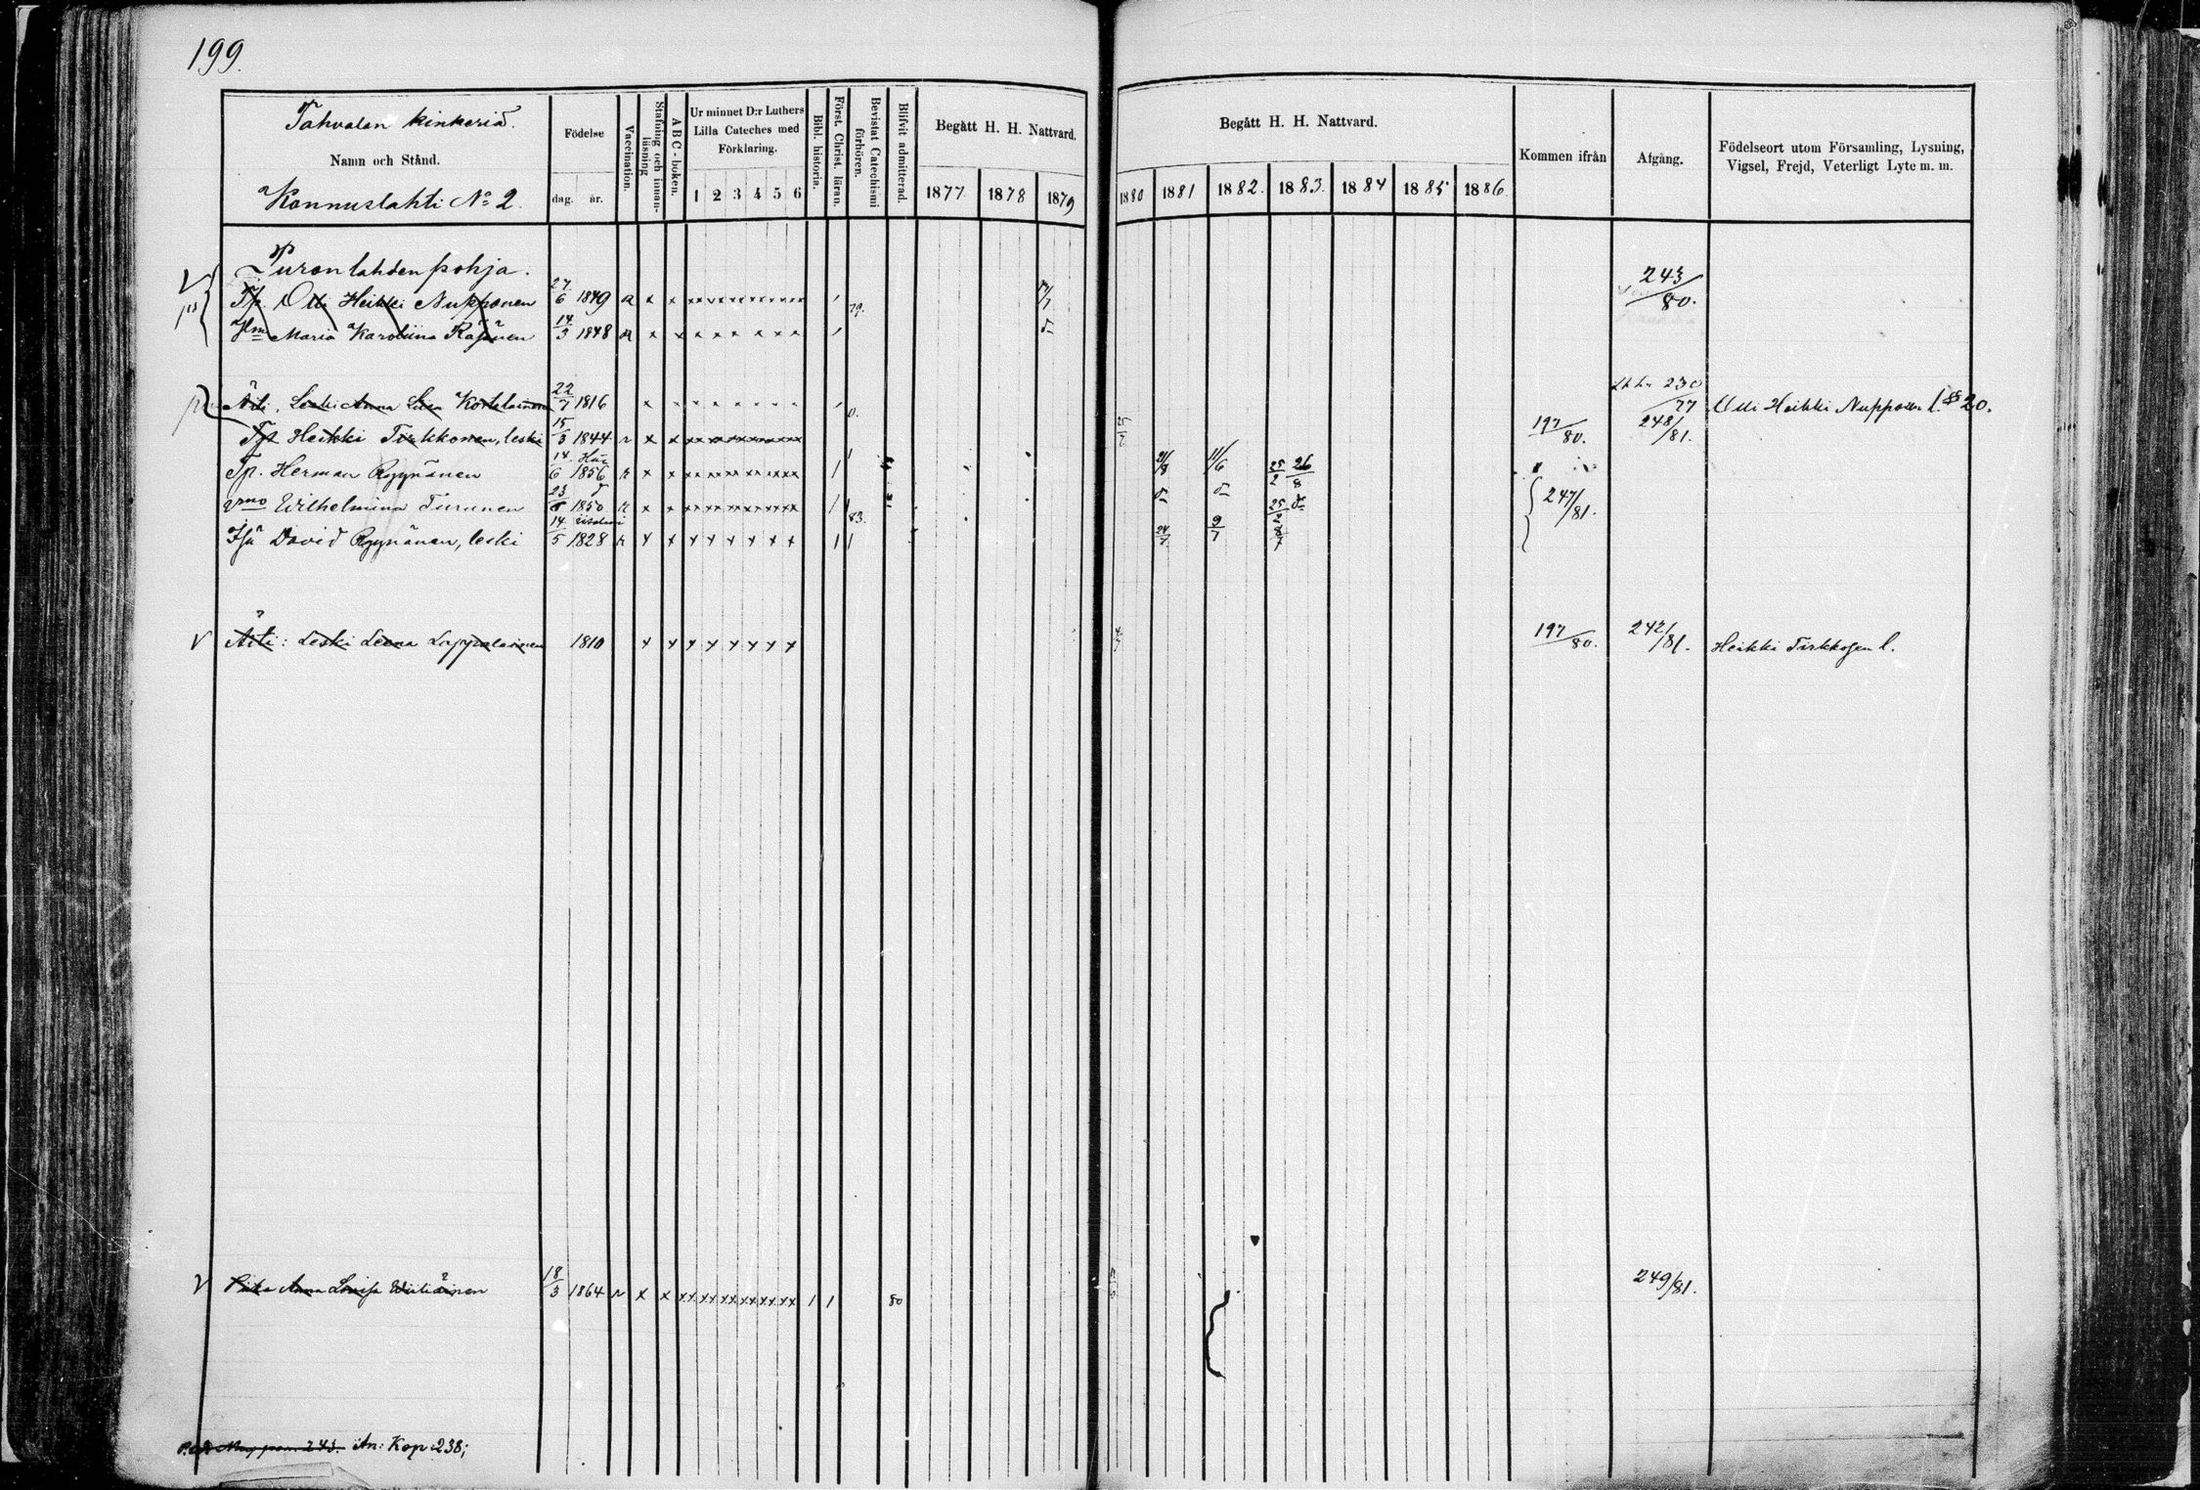 199.
Tahvalan kinkeriä.
Namn och Stånd.
Konnuslahti No 2.
Födelse
dag. år.
Vaccination.
Stafning och innan-läsning
ABC-boken.
Ur minnet D:r Luthers
Lilla Cateches med
Förklaring.
1 2 3 4 5 6
Bibl. historia.
Först. Christ. läran.
Bevistat Catechismi förhören.
Blifvit admitterad.
Begått H. H. Nattvard.
1877 1878 1879
Begått H. H. Nattvard.
1880 1881 1882. 1883. 1884 1885 1886
Kommen ifrån
Afgång.
Födelseort utom Församling, Lysning,
Vigsel, Frejd, Veterligt Lyte m. m.
Puron lahden pohja.
Tp. Olli Heikki Nupponen 27/6 1849 243/80.
Hm Maria Karoliina Räsänen 14/3 1848
Äiti. Leski Anna Liisa 22/7 1816 230/77 Olli Heikki Nupposen l. § 20.
Tp Heikki Tirkkonen, leski 15/3 1844 r 197/80. 248/81.
Tp. Herman Ryynänen 14/6 1856 r 11/6 25/2 26/8
Vmo Wilhelmina Turunen 23 1850 r 25/2 247/81.
Isä David Ryynänen, leski 14/5 1828 r 83. 9/7
Äiti: Leski Leena Lappalainen 1810 197/80. 242/81. Heikki Tirkkosen l.
Piika Anna Lovisa 18/3 1864 r 80 249/81.
An: Kop: 238;